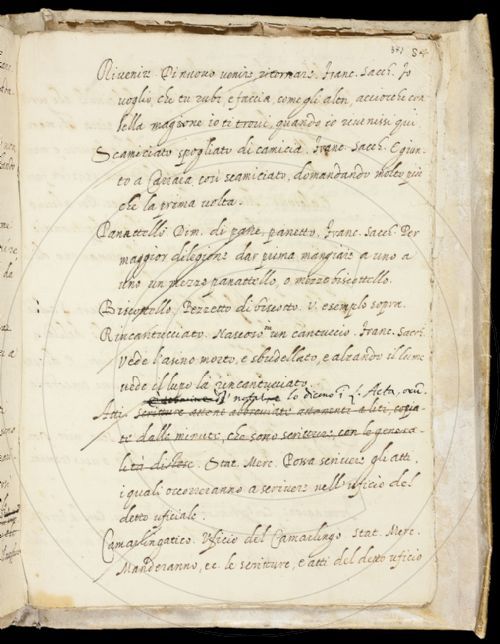 381 84
Rivenire. Di nuovo venire, ritornare. Franc. Sacch. Io
voglio, che tu rubi, e faccia, come gli altri, acciocche con
bella magione io ti trovi, quando io rivenissi qui
Scamiciato spogliato di camicia. Franc. Sacch. E giun-
to a Capraia così scamiciato, domandando molto più
che la prima volta.
Panattello Dim. di pane, panetto. Franc. Sacch. Per
maggior delegione dar prima mangiare a uno a
uno un mezzo panattello, o mezzo biscottello.
Biscottello, Pezzetto di biscotto. v. esempio sopra.
Rincantucciato. Nascoso in un cantuccio. Franc. Sacch.
Vede l'asino morto, e sbudellato, e alzando il lume
vede il lupo là rincantucciato.
lo diemo Acta, orũ.
Atti. Scritture attone abbreviate attenenti a liti, copia-
te dalle minute, che sono scritture, con le genera-
lità distese. Stat. Merc. Possa scrivere gli atti,
i quali occorreranno a scrivere nell'uficio del
detto uficiale.
Camarlingatico. Uficio del Camarlingo. Stat. Merc.
Manderanno, ec. le scritture, e atti del detto uficio